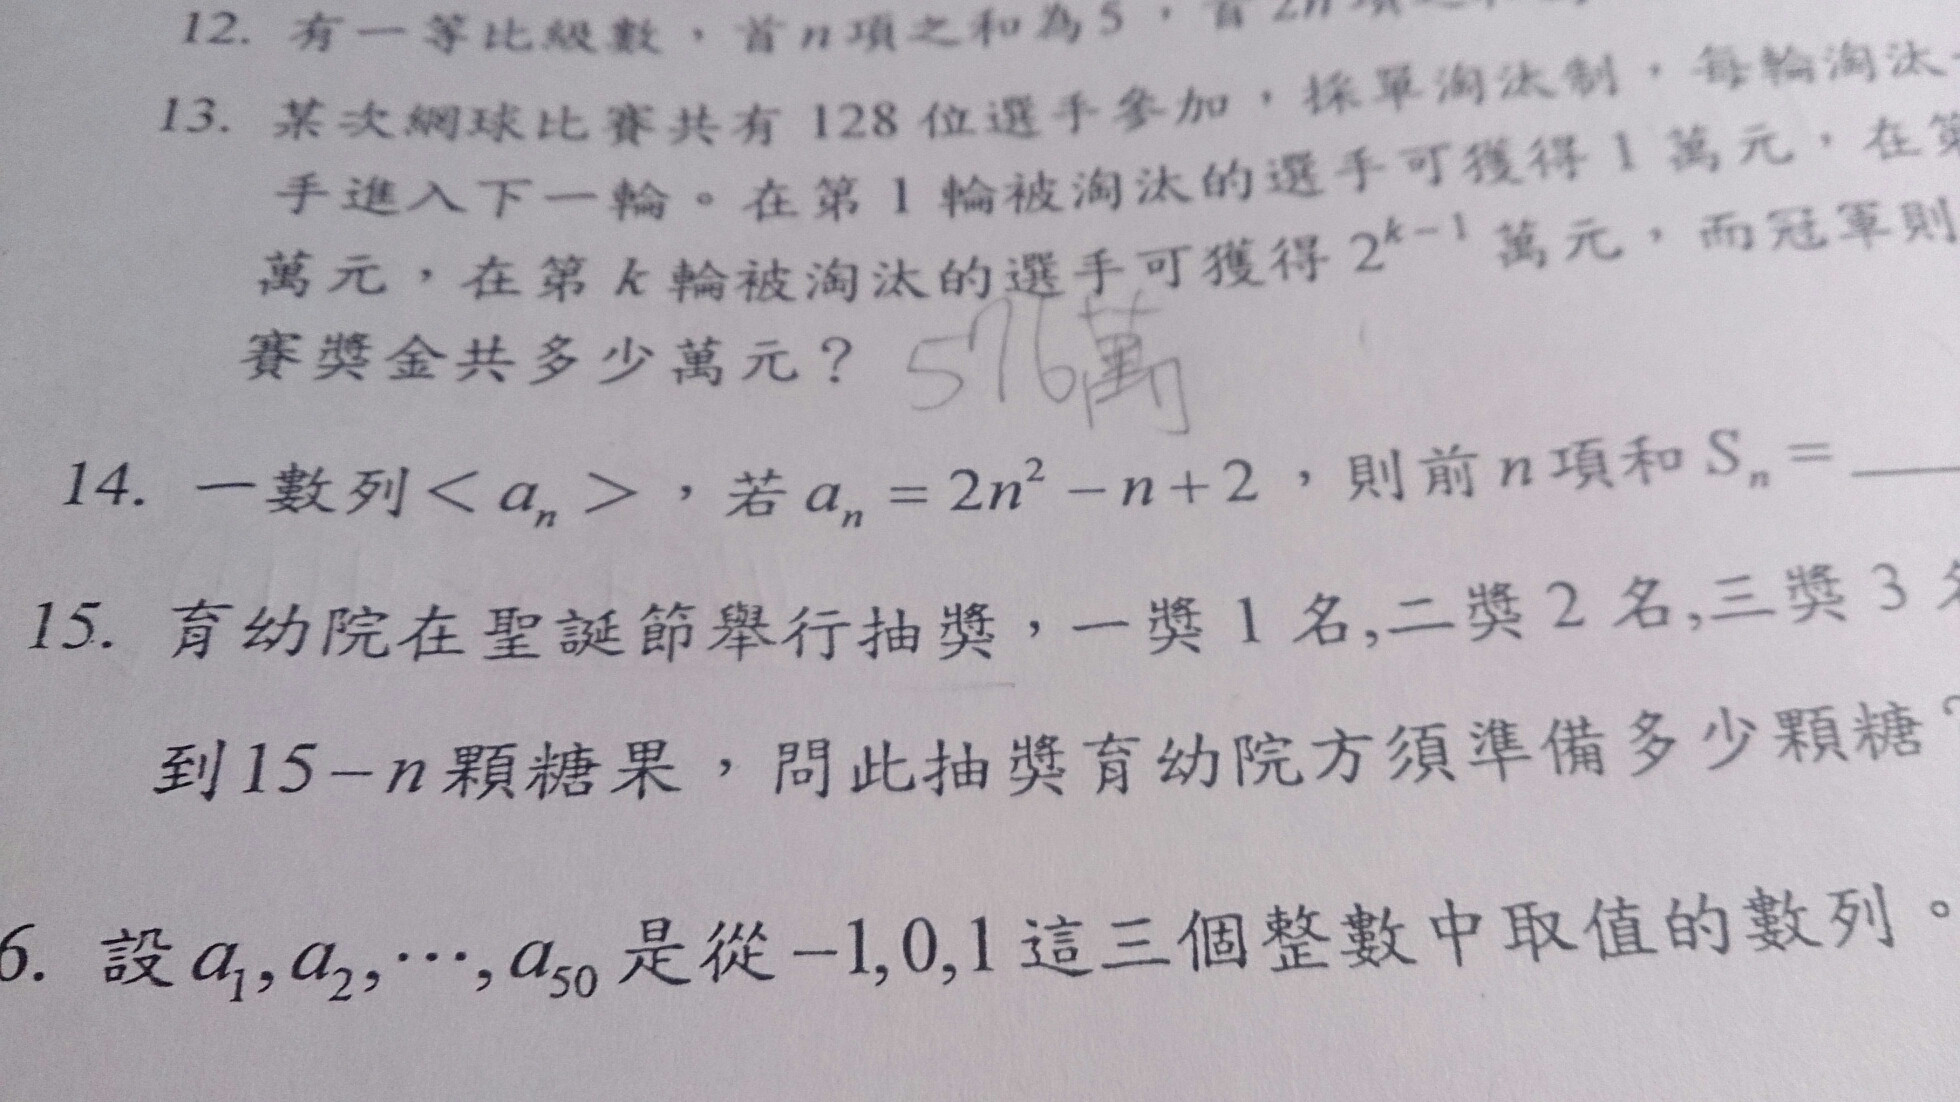 12. 有一等比級數，首n項之和為5，首2n項之和
13. 某次網球比賽共有 128 位選手參加，採單淘汰制，每輪淘汰
手進入下一輪。在第 1 輪被淘汰的選手可獲得 1 萬元，在第
萬元，在第 k 輪被淘汰的選手可獲得 2^{k-1} 萬元，而冠軍則
賽獎金共多少萬元？ 576萬
14. 一數列<a_n>，若 a_n = 2n²-n+2，則前n項和 S_n = ___
15. 育幼院在聖誕節舉行抽獎，一獎 1 名,二獎 2 名,三獎 3 名
到15-n顆糖果，問此抽獎育幼院方須準備多少顆糖？
6. 設 a_1, a_2, ⋯, a_50 是從 -1,0,1 這三個整數中取值的數列。